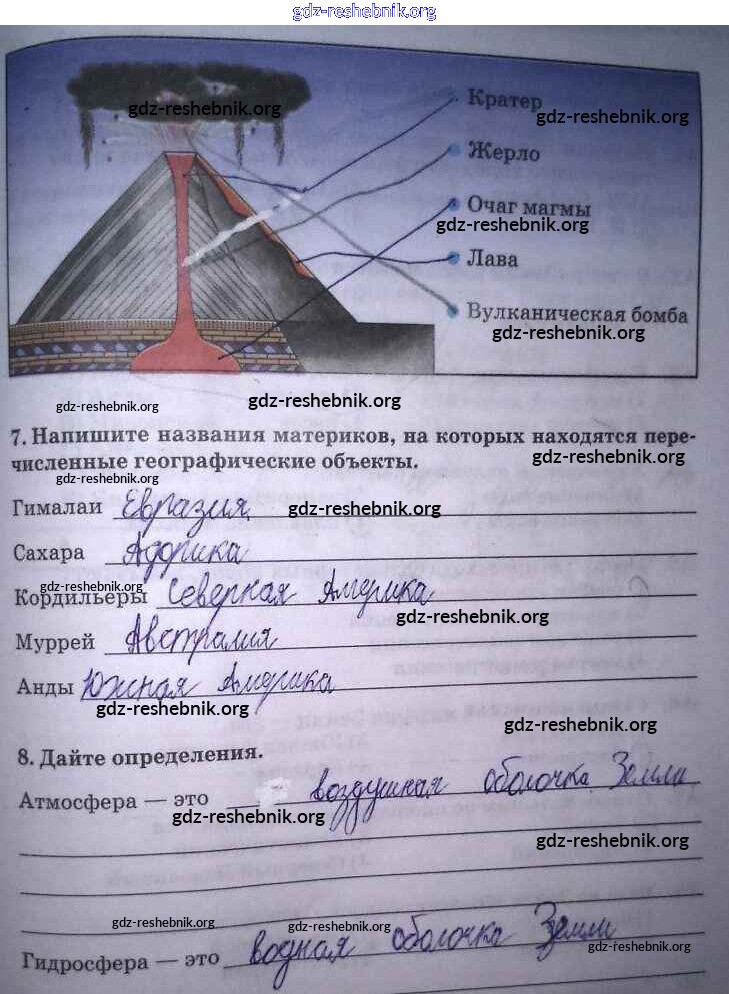 gdz-reshebnik.org
gdz-reshebnik.org
Кратер
gdz-reshebnik.org
Жерло
Очаг магмы
gdz-reshebnik.org
Лава
Вулканическая бомба
gdz-reshebnik.org
gdz-reshebnik.org
gdz-reshebnik.org
7. Напишите названия материков, на которых находятся пере-
численные географические объекты.
gdz-reshebnik.org
gdz-reshebnik.org
Гималаи Евразия
gdz-reshebnik.org
Сахара Африка
gdz-reshebnik.org
Кордильеры Северная Америка
gdz-reshebnik.org
Муррей Австралия
Анды Южная Америка
gdz-reshebnik.org
gdz-reshebnik.org
8. Дайте определения.
Атмосфера — это воздушная оболочка Земли
gdz-reshebnik.org
gdz-reshebnik.org
gdz-reshebnik.org
gdz-reshebnik.org
Гидросфера — это водная оболочка Земли
gdz-reshebnik.org